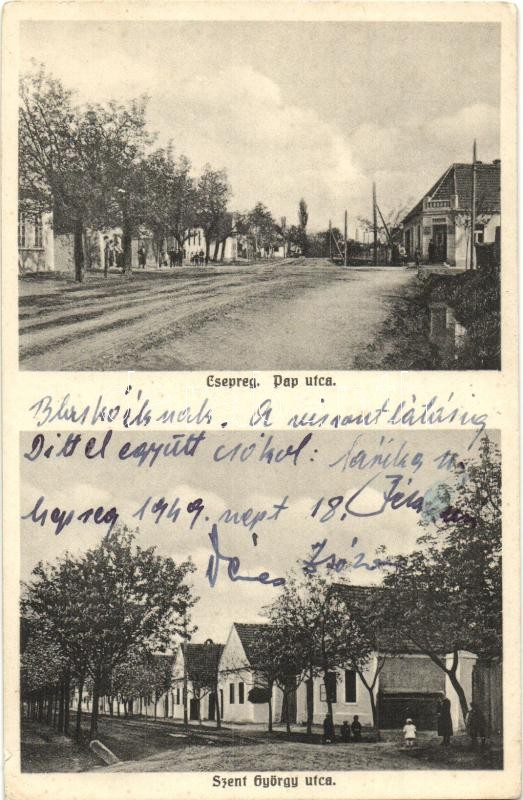 Csepreg. Pap utca.
Blaskóéknak. A viszontlátásig
Dittel együtt csókol: Sárika
Csepreg 1949. szept 18.
Dénes
Szent György utca.